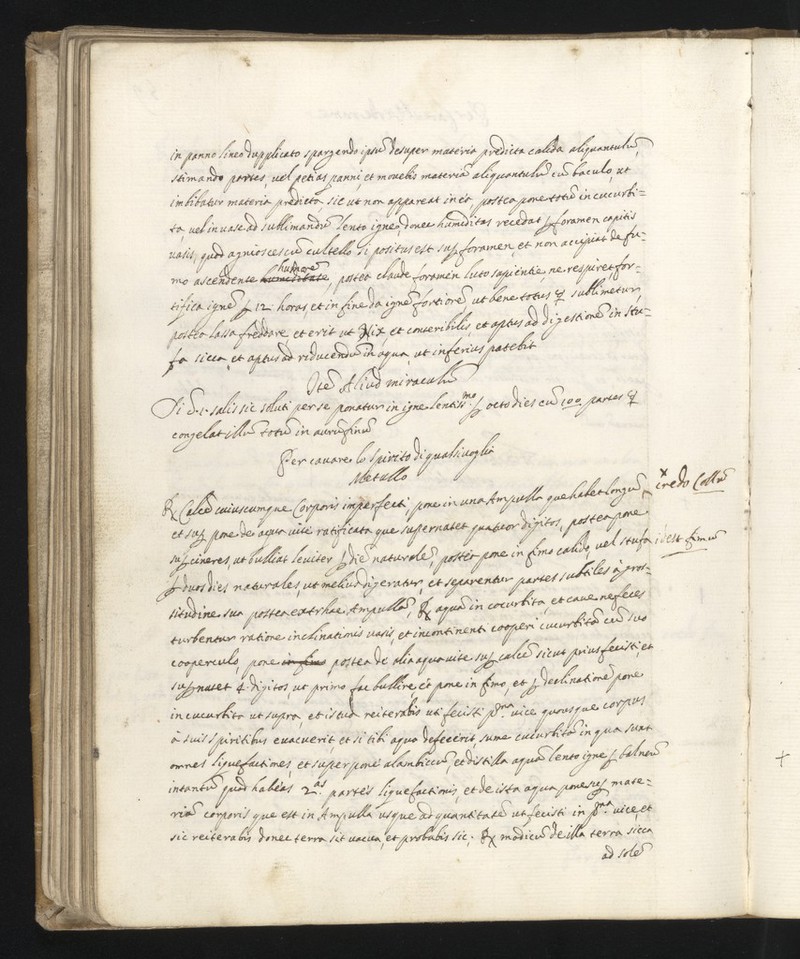 in panno lineo dupplicato spargendo ipsū desuper materia predicta calida aliquantulū,
stimando partes, uel petias panni, et mouebis materiā aliquantulū cū baculo, ut
imbibatur materia predicta sic ut non appareat in ea, postea pone totū in cucurbi=
ta, uel in uase ad sublimandū lento igne, donec humiditas recedat ꝑ foramen capitis
uasis, quod agniosces cū cultello si positus est suꝑ foramen, et non accipiat de fu=
mo ascendente humiditate humore, postea claude foramen luto sapientie, ne respiret, for=
tifica igne ꝑ 12 horas et in fine da ignē fortiorē ut bene totus ☿ sublimetur,
postea lassa freddare, et erit ut Nix, et conueribilis et aptus ad digestionē in stu=
fa sicca, et aptus ad riducendū in aqua, ut inferius patebit
Itē Aliud miraculū
Si salis sic soluti per se ponatur in igne lentissmo ꝑ octo dies cū 100 partes ☿
congelat illū totū in aurū finū
Per cauare lo spirito di qualsiuoglia
Metallo
℞ Calcē cuiuscumque Corporis imperfecti, pone in una Ampulla que habet longū x credo Collū
et suꝑ pone de aqua uite ratificata que supernatet quatuor digitos, postea pone
suꝑ cineres ut bulliat leuiter ꝑ diē naturale, postea pone in fimo calido, uel stufa idest fimū
ꝑ duos dies naturales, ut melius digeratur, et separentur partes subtiles à gros=
situdine sua postea extrhae Ampullā, ℞ aquā in cocurbita et caue ne feces
turbentur ratione inclinationis uasis, et incontinenti cooperi cucurbitā cū suo
cooperculo, pone in fimo postea de alia aqua uite suꝑ calcē sicut prius fecisti, et
suꝑnatet 4 digitos ut primo fac bullire et pone in fimo, et ꝑ declinationē pone
in cucurbita ut supra, et istud reiterabis uti fecisti pra. uice quousque corpus
à suis spiritibus euacuerit, et si tibi aqua defecerit sume cucurbitā in qua sunt
omnes liquefactiones, et superpone alambiccū, et distilla aquā lento igne ꝑ balneū
intantū quod habeas 2as. partes liquefactionis, et de ista aqua pones suꝑ mate=
riā corporis que est in Ampulla usque ad quantitatē ut fecisti in pra. uice, et
sic reiterabis donec terra sit uacua, et probabis sic. ℞ modicū de illa terra sicca
ad solē